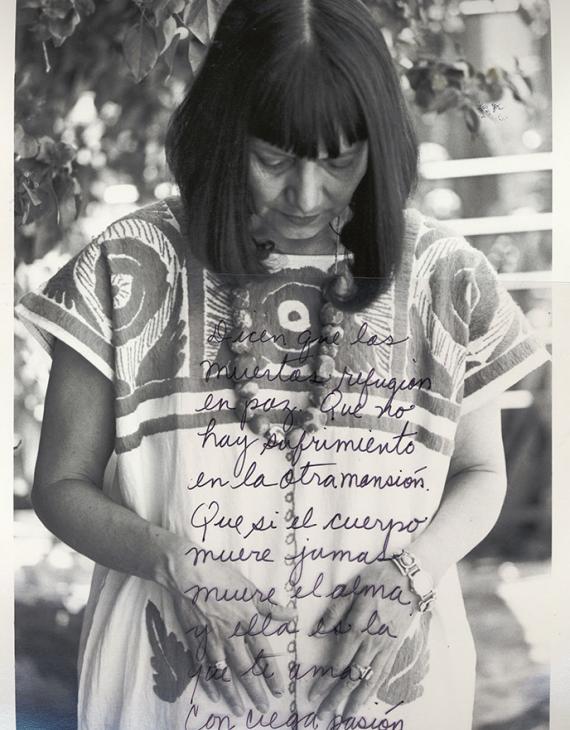 Dicen que los
muertos refugian
en paz. Que no
hay sufrimiento
en la otra mansión.
Que si el cuerpo
muere jamas
muere el alma
y ella es la
que te ama
Con ciega pasión